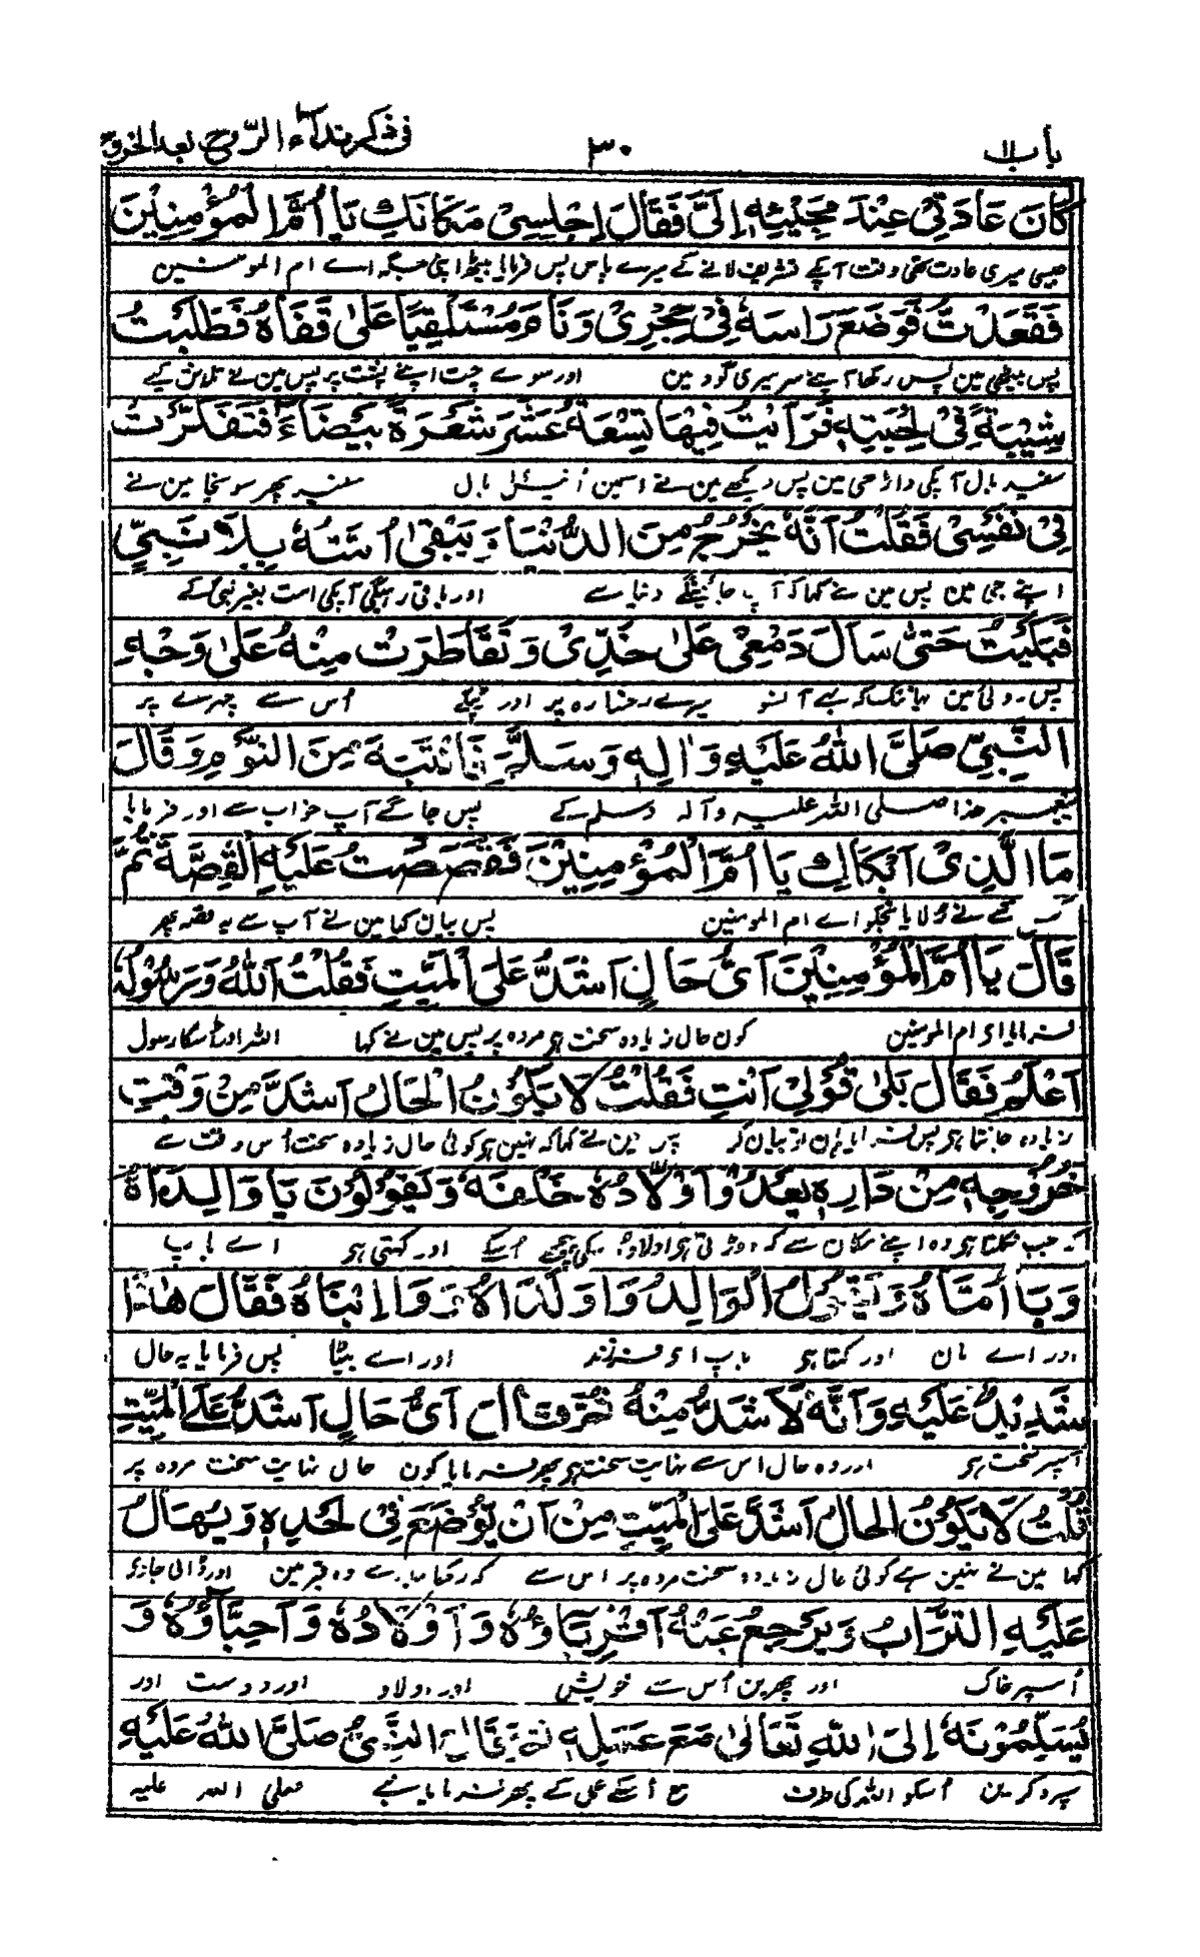 باب ١١ ٣٠ فی ذکر نداء الرّوح بعد الخروج
كَانَ عَادَتِيْ عِنْدَ مَجِيْئِهٖ إِلَيَّ فَقَالَ اِجْلِسِيْ مَكَانَكِ يَا أُمَّ الْمُؤْمِنِيْنَ
جیسی میری عادت تھی وقت آپکے تشریف لانے کے میرے پاس پس فرمایا بیٹھ اپنی جگہ اے ام المومنین
فَقَعَدْتُّ فَوَضَعَ رَاسَهٗ فِيْ حَجْرِيْ وَنَامَ مُسْتَلْقِيًا عَلٰى قَفَاهُ فَطَلَبْتُ
پس بیٹھی مین پس رکھا آپنے سر میری گود مین اور سوے چت اپنے پشت پر پس مین نے تلاش کیے
شَيْبَةً فِيْ لِحْيَتِهٖ فَرَأَيْتُ فِيْهَا تِسْعَةَ عَشَرَ شَعْرَةً بَيْضَاءَ فَتَفَكَّرْتُ
سفید بال آپکی داڑھی مین پس دیکھے مین نے اسمین اُنیئل بال سفید پھر سونچا مین نے
فِيْ نَفْسِيْ فَقُلْتُ اَنَّهٗ يَخْرُجُ مِنَ الدُّنْيَا وَيَبْقٰى اُمَّتُهٗ بِلَا نَبِيٍّ
اپنے جی مین پس مین نے کہا کہ آپ جائینگے دنیا سے اور باقی رہیگی آپکی امت بغیر نبی کے
فَبَكَيْتُ حَتّٰى سَالَ دَمْعِيْ عَلٰى خَدِّيْ وَتَقَاطَرَتْ مِنْهُ عَلٰى وَجْهِ
پس روئی مین یہانتک کہ بہے آنسو میرے رخسارہ پر اور ٹپکے اُس سے چہرے پر
النَّبِيِّ صَلَّى اللهُ عَلَيْهِ وَاٰلِهٖ وَسَلَّمَ فَانْتَبَهَ مِنَ النَّوْمِ وَقَالَ
پیغمبر خدا صلی اللہ علیہ وآلہ وسلم کے پس جاگے آپ خواب سے اور فرمایا
مَا الَّذِيْ اَبْكَاكِ يَا اُمَّ الْمُؤْمِنِيْنَ فَقَصَصْتُ عَلَيْهِ الْقِصَّةَ ثُمَّ
نے رُلایا تجکو اے ام المومنین پس بیان کیا مین نے آپ سے یہ قصہ پھر
قَالَ يَا اُمَّ الْمُؤْمِنِيْنَ اَيُّ حَالٍ اَشَدُّ عَلَى الْمَيِّتِ فَقُلْتُ اَللهُ وَرَسُوْلُهٗ
فرمایا اے ام المومنین کون حال زیادہ سخت ہو مردہ پر پس مین نے کہا اللہ اور اُسکا رسول
اَعْلَمُ فَقَالَ بَلٰى قُوْلِيْ اَنْتِ فَقُلْتُ لَا يَكُوْنُ الْحَالُ اَشَدَّ مِنْ وَقْتِ
زیادہ جانتا ہو پس فرمایا ہان تو بیان کر پس مین نے کہا کہ نہین ہو کوئی حال زیادہ سخت اُس وقت سے
خُرُوْجِهٖ مِنْ دَارِهٖ بَعْدُ وَاَوْلَادُهٗ خَلْفَهٗ وَيَقُوْلُوْنَ يَا وَالِدَاهُ
کہ جب نکلتا ہو وہ اپنے مکان سے کہ دوڑتی ہو اولاد پیچھے اُسکے اور کہتی ہو اے باپ
وَيَا اُمَّاهُ وَيَقُوْلُ الْوَالِدُ وَاوَلَدَاهُ وَا اِبْنَاهُ فَقَالَ هٰذَا
اور اے مان اور کہتا ہو باپ اے فرزند اور اے بیٹا پس فرمایا یہ حال
شَدِيْدٌ عَلَيْهِ وَاَنَّهٗ لَاَشَدُّ مِنْهُ ثُمَّ قَالَ اَيُّ حَالٍ اَشَدُّ عَلَى الْمَيِّتِ
اسپر سخت ہو اور وہ حال اس سے نہایت سخت ہو پھر فرمایا کون حال نہایت سخت مردہ پر
قُلْتُ لَا يَكُوْنُ الْحَالُ اَشَدَّ عَلَى الْمَيِّتِ مِنْ اَنْ يُّوْضَعَ فِيْ لَحْدِهٖ وَيُهَالُ
کہا مین نے نہین ہے کوئی حال زیادہ سخت مردہ پر اس سے کہ رکھا جاوے وہ قبر مین اور ڈالی جاوے
عَلَيْهِ التُّرَابُ وَيَرْجِعُ عَنْهُ اَقْرِبَاؤُهٗ وَاَوْلَادُهٗ وَاَحِبَّاؤُهٗ وَ
اُسپر خاک اور پھرین اُس سے خویش اور اولاد اور دوست اور
يُسَلِّمُوْنَهٗ اِلَى اللهِ تَعَالٰى مَعَ عَمَلِهٖ قَالَ النَّبِيُّ صَلَّى اللهُ عَلَيْهِ
سپرد کرین اُسکو اللہ کی طرف مع اُسکے عمل کے پھر فرمایا نبی صلی اللہ علیہ